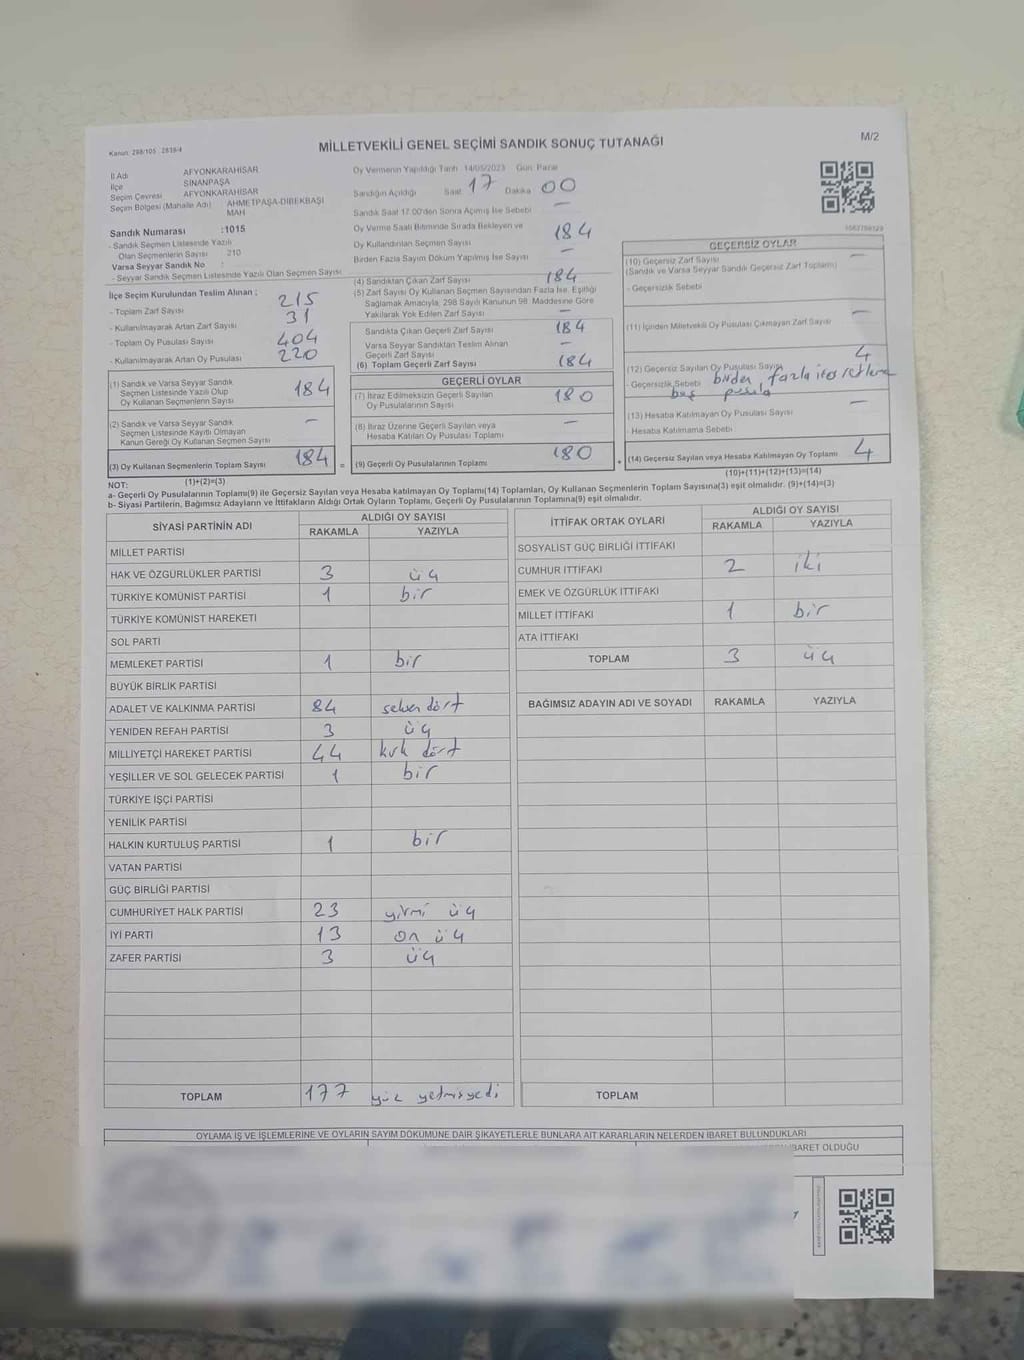 MİLLETVEKİLİ GENEL SEÇİMİ SANDIK SONUÇ TUTANAĞI
M/2
Kanun: 298/105 : 2839/4
İl Adı AFYONKARAHİSAR
İlçe SİNANPAŞA
Seçim Çevresi AFYONKARAHİSAR
Seçim Bölgesi (Mahalle Adı) AHMETPAŞA-DİBEKBAŞI MAH
Sandık Numarası :1015
- Sandık Seçmen Listesinde Yazılı
Olan Seçmenlerin Sayısı 210
Varsa Seyyar Sandık No :
- Seyyar Sandık Seçmen Listesinde Yazılı Olan Seçmen Sayısı
Oy Vermenin Yapıldığı Tarih 14/05/2023 Gün Pazar
Sandığın Açıldığı Saat 17 Dakika 00
Sandık Saat 17:00'den Sonra Açılmış İse Sebebi —
Oy Verme Saati Bitiminde Sırada Bekleyen ve
Oy Kullandırılan Seçmen Sayısı 184
Birden Fazla Sayım Döküm Yapılmış İse Sayısı —
İlçe Seçim Kurulundan Teslim Alınan :
- Toplam Zarf Sayısı 215
- Kullanılmayarak Artan Zarf Sayısı 31
- Toplam Oy Pusulası Sayısı 404
- Kullanılmayarak Artan Oy Pusulası 220
(1) Sandık ve Varsa Seyyar Sandık
Seçmen Listesinde Yazılı Olup
Oy Kullanan Seçmenlerin Sayısı 184
(2) Sandık ve Varsa Seyyar Sandık
Seçmen Listesinde Kayıtlı Olmayan
Kanun Gereği Oy Kullanan Seçmen Sayısı —
(3) Oy Kullanan Seçmenlerin Toplam Sayısı 184 =
(1)+(2)=(3)
(4) Sandıktan Çıkan Zarf Sayısı 184
(5) Zarf Sayısı Oy Kullanan Seçmen Sayısından Fazla İse, Eşitliği
Sağlamak Amacıyla, 298 Sayılı Kanunun 98. Maddesine Göre
Yakılarak Yok Edilen Zarf Sayısı —
Sandıkta Çıkan Geçerli Zarf Sayısı 184
Varsa Seyyar Sandıktan Teslim Alınan
Geçerli Zarf Sayısı —
(6) Toplam Geçerli Zarf Sayısı 184
GEÇERLİ OYLAR
(7) İtiraz Edilmeksizin Geçerli Sayılan
Oy Pusulalarının Sayısı 180
(8) İtiraz Üzerine Geçerli Sayılan veya
Hesaba Katılan Oy Pusulası Toplamı —
(9) Geçerli Oy Pusulalarının Toplamı 180 +
GEÇERSİZ OYLAR
(10) Geçersiz Zarf Sayısı —
(Sandık ve Varsa Seyyar Sandık Geçersiz Zarf Toplamı)
- Geçersizlik Sebebi
(11) İçinden Milletvekili Oy Pusulası Çıkmayan Zarf Sayısı —
(12) Geçersiz Sayılan Oy Pusulası Sayısı 4
- Geçersizlik Sebebi birden fazla
boş pusula
(13) Hesaba Katılmayan Oy Pusulası Sayısı —
- Hesaba Katılmama Sebebi
(14) Geçersiz Sayılan veya Hesaba Katılmayan Oy Toplamı 4
(10)+(11)+(12)+(13)=(14)
NOT:
a- Geçerli Oy Pusulalarının Toplamı(9) ile Geçersiz Sayılan veya Hesaba katılmayan Oy Toplamı(14) Toplamları, Oy Kullanan Seçmenlerin Toplam Sayısına(3) eşit olmalıdır. (9)+(14)=(3)
b- Siyasi Partilerin, Bağımsız Adayların ve İttifakların Aldığı Ortak Oyların Toplamı, Geçerli Oy Pusulalarının Toplamına(9) eşit olmalıdır.
SİYASİ PARTİNİN ADI ALDIĞI OY SAYISI
RAKAMLA YAZIYLA
MİLLET PARTİSİ
HAK VE ÖZGÜRLÜKLER PARTİSİ 3 üç
TÜRKİYE KOMÜNİST PARTİSİ 1 bir
TÜRKİYE KOMÜNİST HAREKETİ
SOL PARTİ
MEMLEKET PARTİSİ 1 bir
BÜYÜK BİRLİK PARTİSİ
ADALET VE KALKINMA PARTİSİ 84 seksen dört
YENİDEN REFAH PARTİSİ 3 üç
MİLLİYETÇİ HAREKET PARTİSİ 44 kırk dört
YEŞİLLER VE SOL GELECEK PARTİSİ 1 bir
TÜRKİYE İŞÇİ PARTİSİ
YENİLİK PARTİSİ
HALKIN KURTULUŞ PARTİSİ 1 bir
VATAN PARTİSİ
GÜÇ BİRLİĞİ PARTİSİ
CUMHURİYET HALK PARTİSİ 23 yirmi üç
İYİ PARTİ 13 on üç
ZAFER PARTİSİ 3 üç
TOPLAM 177 yüz yetmişyedi
İTTİFAK ORTAK OYLARI ALDIĞI OY SAYISI
RAKAMLA YAZIYLA
SOSYALİST GÜÇ BİRLİĞİ İTTİFAKI
CUMHUR İTTİFAKI 2 iki
EMEK VE ÖZGÜRLÜK İTTİFAKI
MİLLET İTTİFAKI 1 bir
ATA İTTİFAKI
TOPLAM 3 üç
BAĞIMSIZ ADAYIN ADI VE SOYADI RAKAMLA YAZIYLA
TOPLAM
OYLAMA İŞ VE İŞLEMLERİNE VE OYLARIN SAYIM DÖKÜMÜNE DAİR ŞİKAYETLERLE BUNLARA AİT KARARLARIN NELERDEN İBARET BULUNDUKLARI
İBARET OLDUĞU